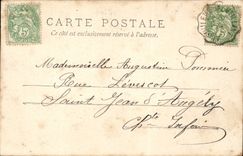 CARTE POSTALE
Ce côté est exclusivement réservé à l'adresse.
5
5
Mademoiselle Augustine
Rue
Saint Jean d'Angély
Ch<sup>te</sup> Infre